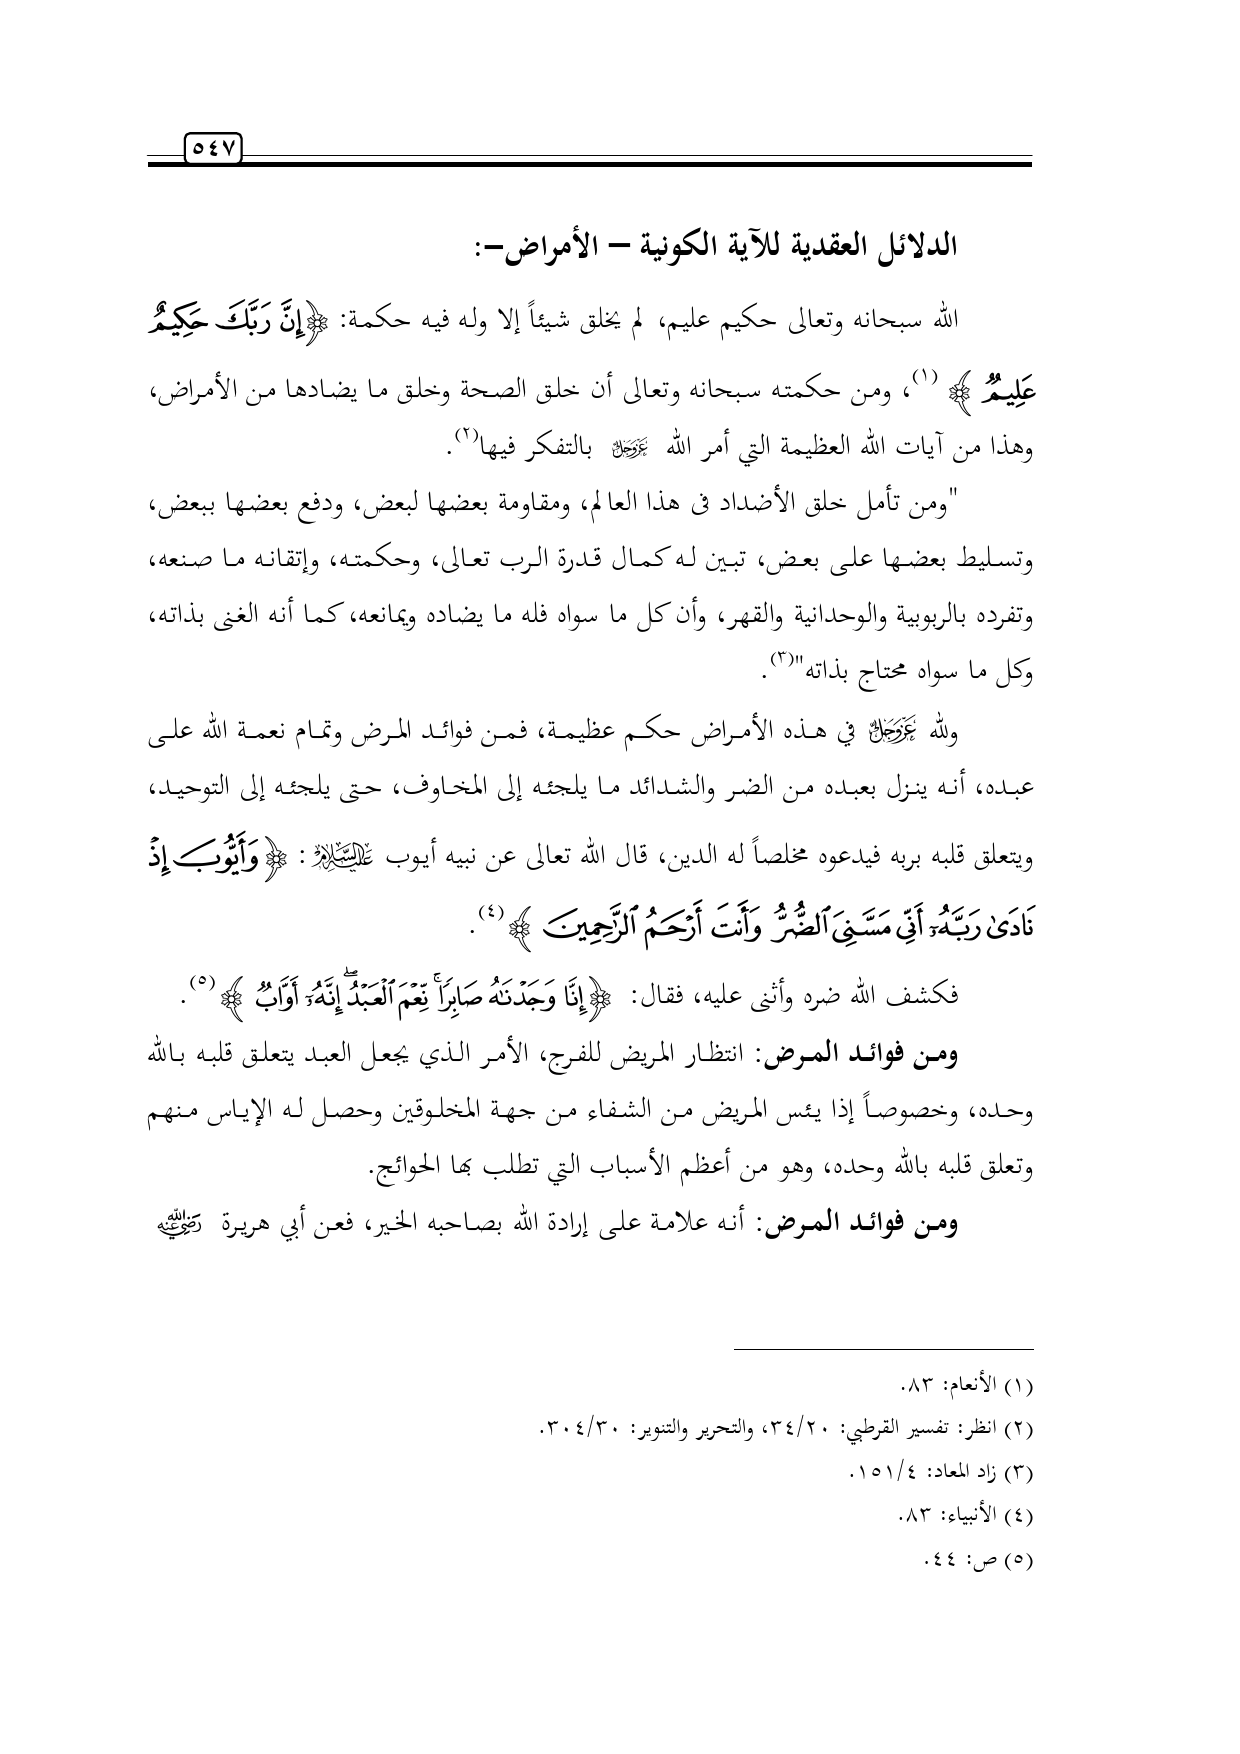 ٥٤٧
الدلائل العقدية للآية الكونية – الأمراض–:
الله سبحانه وتعالى حكيم عليم، لم يخلق شيئاً إلا وله فيه حكمة: ﴿إِنَّ رَبَّكَ حَكِيمٌ
عَلِيمٌ ﴾ (١)، ومن حكمته سبحانه وتعالى أن خلق الصحة وخلق ما يضادها من الأمراض،
وهذا من آيات الله العظيمة التي أمر الله عَزَّوَجَلَّ بالتفكر فيها(٢).
"ومن تأمل خلق الأضداد فى هذا العالم، ومقاومة بعضها لبعض، ودفع بعضها ببعض،
وتسليط بعضها على بعض، تبين له كمال قدرة الرب تعالى، وحكمته، وإتقانه ما صنعه،
وتفرده بالربوبية والوحدانية والقهر، وأن كل ما سواه فله ما يضاده ويمانعه، كما أنه الغنى بذاته،
وكل ما سواه محتاج بذاته"(٣).
ولله عَزَّوَجَلَّ في هذه الأمراض حكم عظيمة، فمن فوائد المرض وتمام نعمة الله على
عبده، أنه ينزل بعبده من الضر والشدائد ما يلجئه إلى المخاوف، حتى يلجئه إلى التوحيد،
ويتعلق قلبه بربه فيدعوه مخلصاً له الدين، قال الله تعالى عن نبيه أيوب عَلَيْهِ السَّلَامُ : ﴿ وَأَيُّوبَ إِذْ
نَادَىٰ رَبَّهُۥٓ أَنِّي مَسَّنِيَ ٱلضُّرُّ وَأَنتَ أَرْحَمُ ٱلرَّٰحِمِينَ ﴾(٤).
فكشف الله ضره وأثنى عليه، فقال: ﴿إِنَّا وَجَدْنَٰهُ صَابِرًاۚ نِّعْمَ ٱلْعَبْدُۖ إِنَّهُۥٓ أَوَّابٌ ﴾(٥).
ومن فوائد المرض: انتظار المريض للفرج، الأمر الذي يجعل العبد يتعلق قلبه بالله
وحده، وخصوصاً إذا يئس المريض من الشفاء من جهة المخلوقين وحصل له الإياس منهم
وتعلق قلبه بالله وحده، وهو من أعظم الأسباب التي تطلب بها الحوائج.
ومن فوائد المرض: أنه علامة على إرادة الله بصاحبه الخير، فعن أبي هريرة رَضِيَ اللَّهُ عَنْهُ
(١) الأنعام: ٨٣.
(٢) انظر: تفسير القرطبي: ٣٤/٢٠، والتحرير والتنوير: ٣٠٤/٣٠.
(٣) زاد المعاد: ١٥١/٤.
(٤) الأنبياء: ٨٣.
(٥) ص: ٤٤.